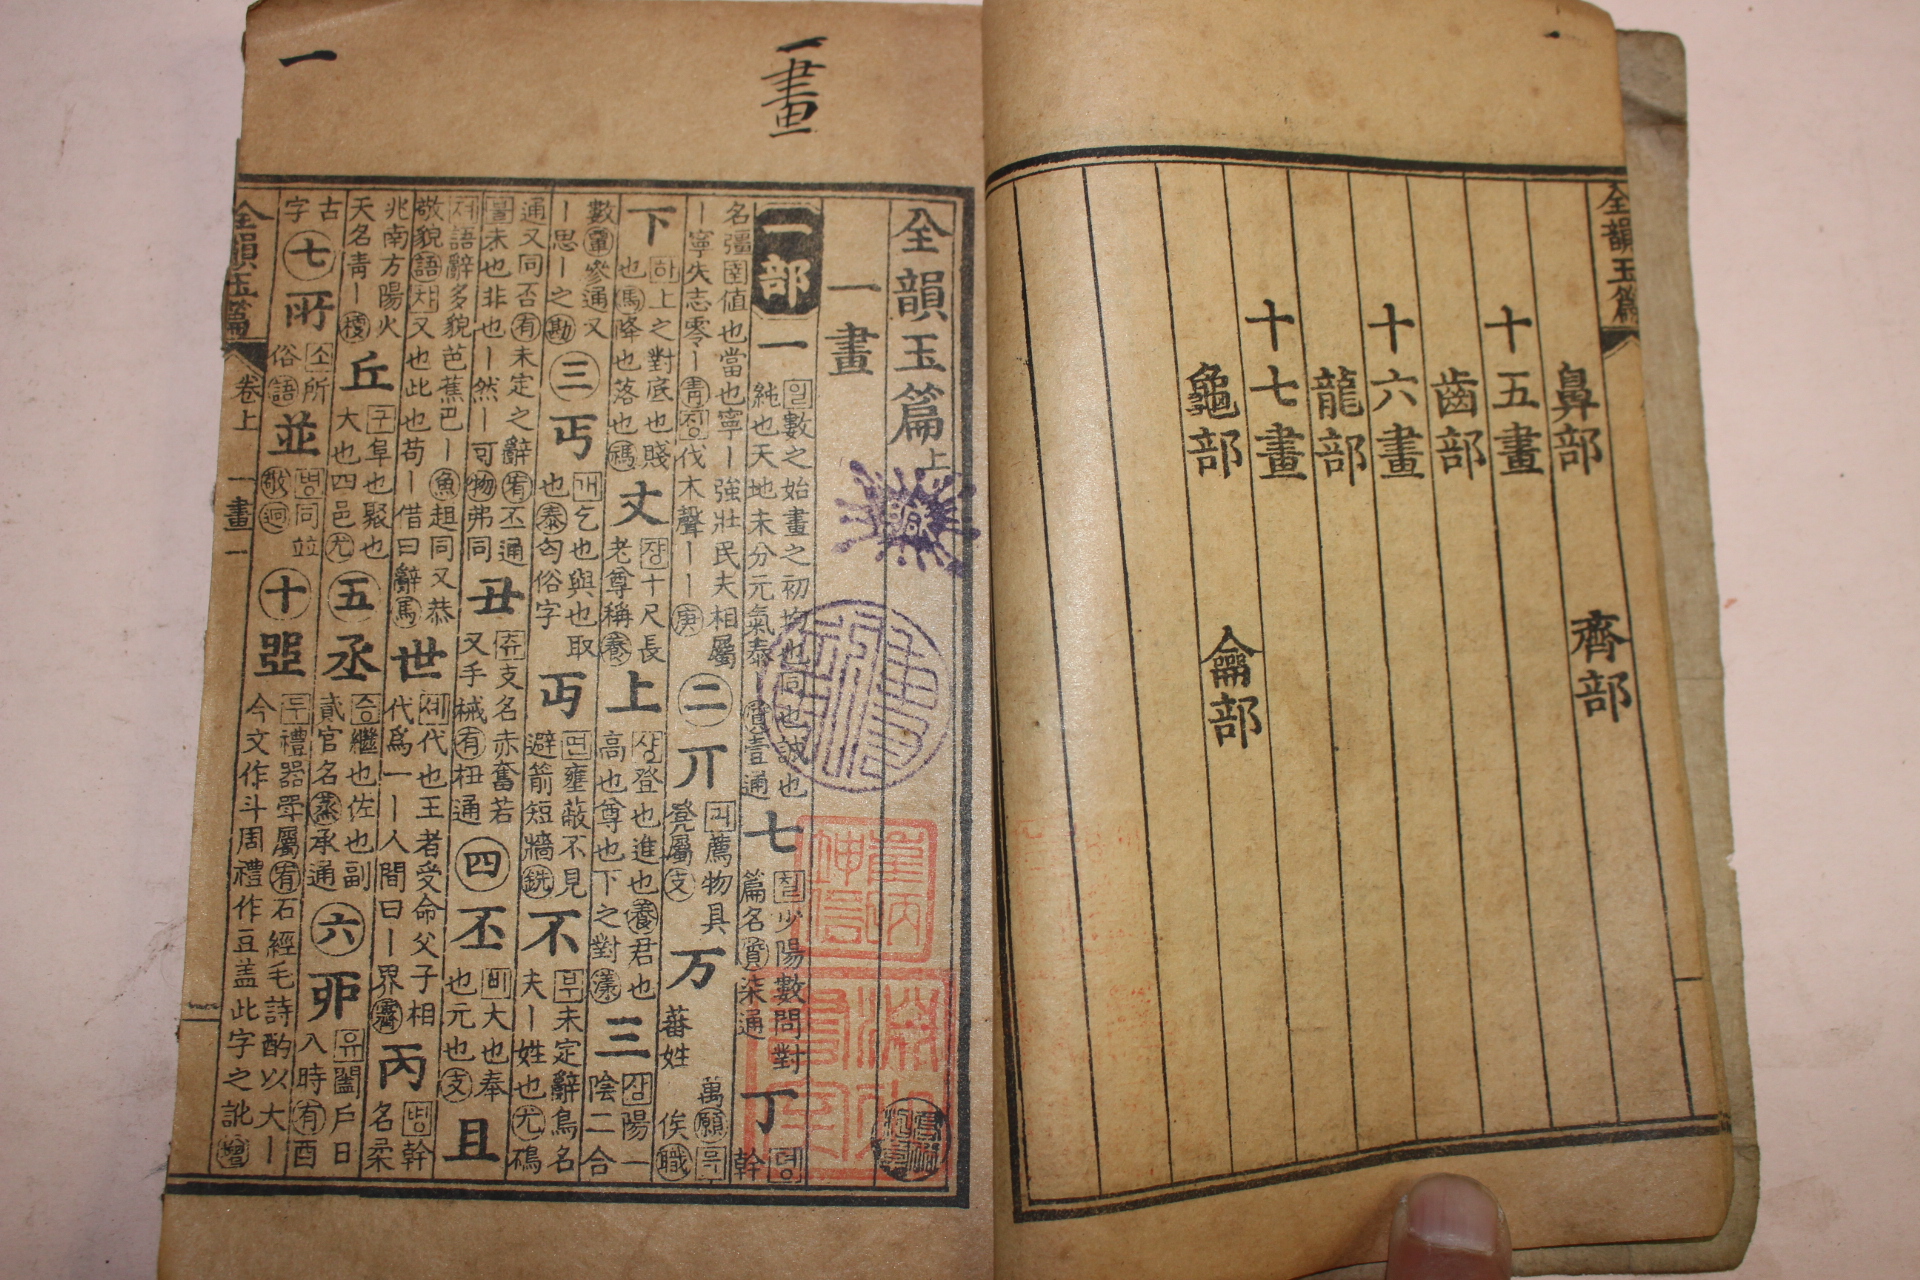 全韻玉篇
鼻部 齊部
十五畫
齒部
十六畫
龍部
十七畫
龜部 龠部
一畫
一
全韻玉篇上
一畫
一部 一 일數之始畫之初均也同也誠也
純也天地未分元氣泰一質壹通
七 칠少陽數問對
篇名質柒通
丁 뎡
幹
名彊圉値也當也寧丨強壯民夫相屬
丨寧失志零丨靑정伐木聲丨丨庚
二 丌 긔薦物具
凳屬支
万 萬願
蕃姓
믁
俟職
下 하上之對底也賤
也馬降也落也禡
丈 쟝十尺長
老尊稱養
上 샹登也進也養君也
高也尊也下之對漾
三 삼陽一
陰二合
數覃參通又
丨思丨之勘
三 丐 개乞也與也取
也泰匃俗字
丏 면壅蔽不見
避箭短牆銑
不 부未定辭鳥名
夫丨姓也尤鴀
通又同否有未定之辭宥丕通
未也非也丨然丨可物弗同
丑 츄支名赤奮若
又手械有杻通
四 丕 비大也奉
也元也支
且
저語辭多貌芭蕉巴丨魚趄同又恭
敬貌語차又也此也苟丨借曰辭馬
世 셰代也王者受命父子相
代爲一丨人間曰丨界霽
丙 병幹
名柔
兆南方陽火
天名靑丨梗
丘 구阜也聚也
大也四邑尤
五 丞 승繼也佐也副
貳官名蒸承通
六 丣 유闔戶日
入時有酉
古
字
七 所 소所
俗語
並 병同竝
敬迥
十 㖶 두禮器斝屬宥石經毛詩酌以大丨
今文作斗周禮作豆盖此字之訛
全韻玉篇 卷上 一畫 一